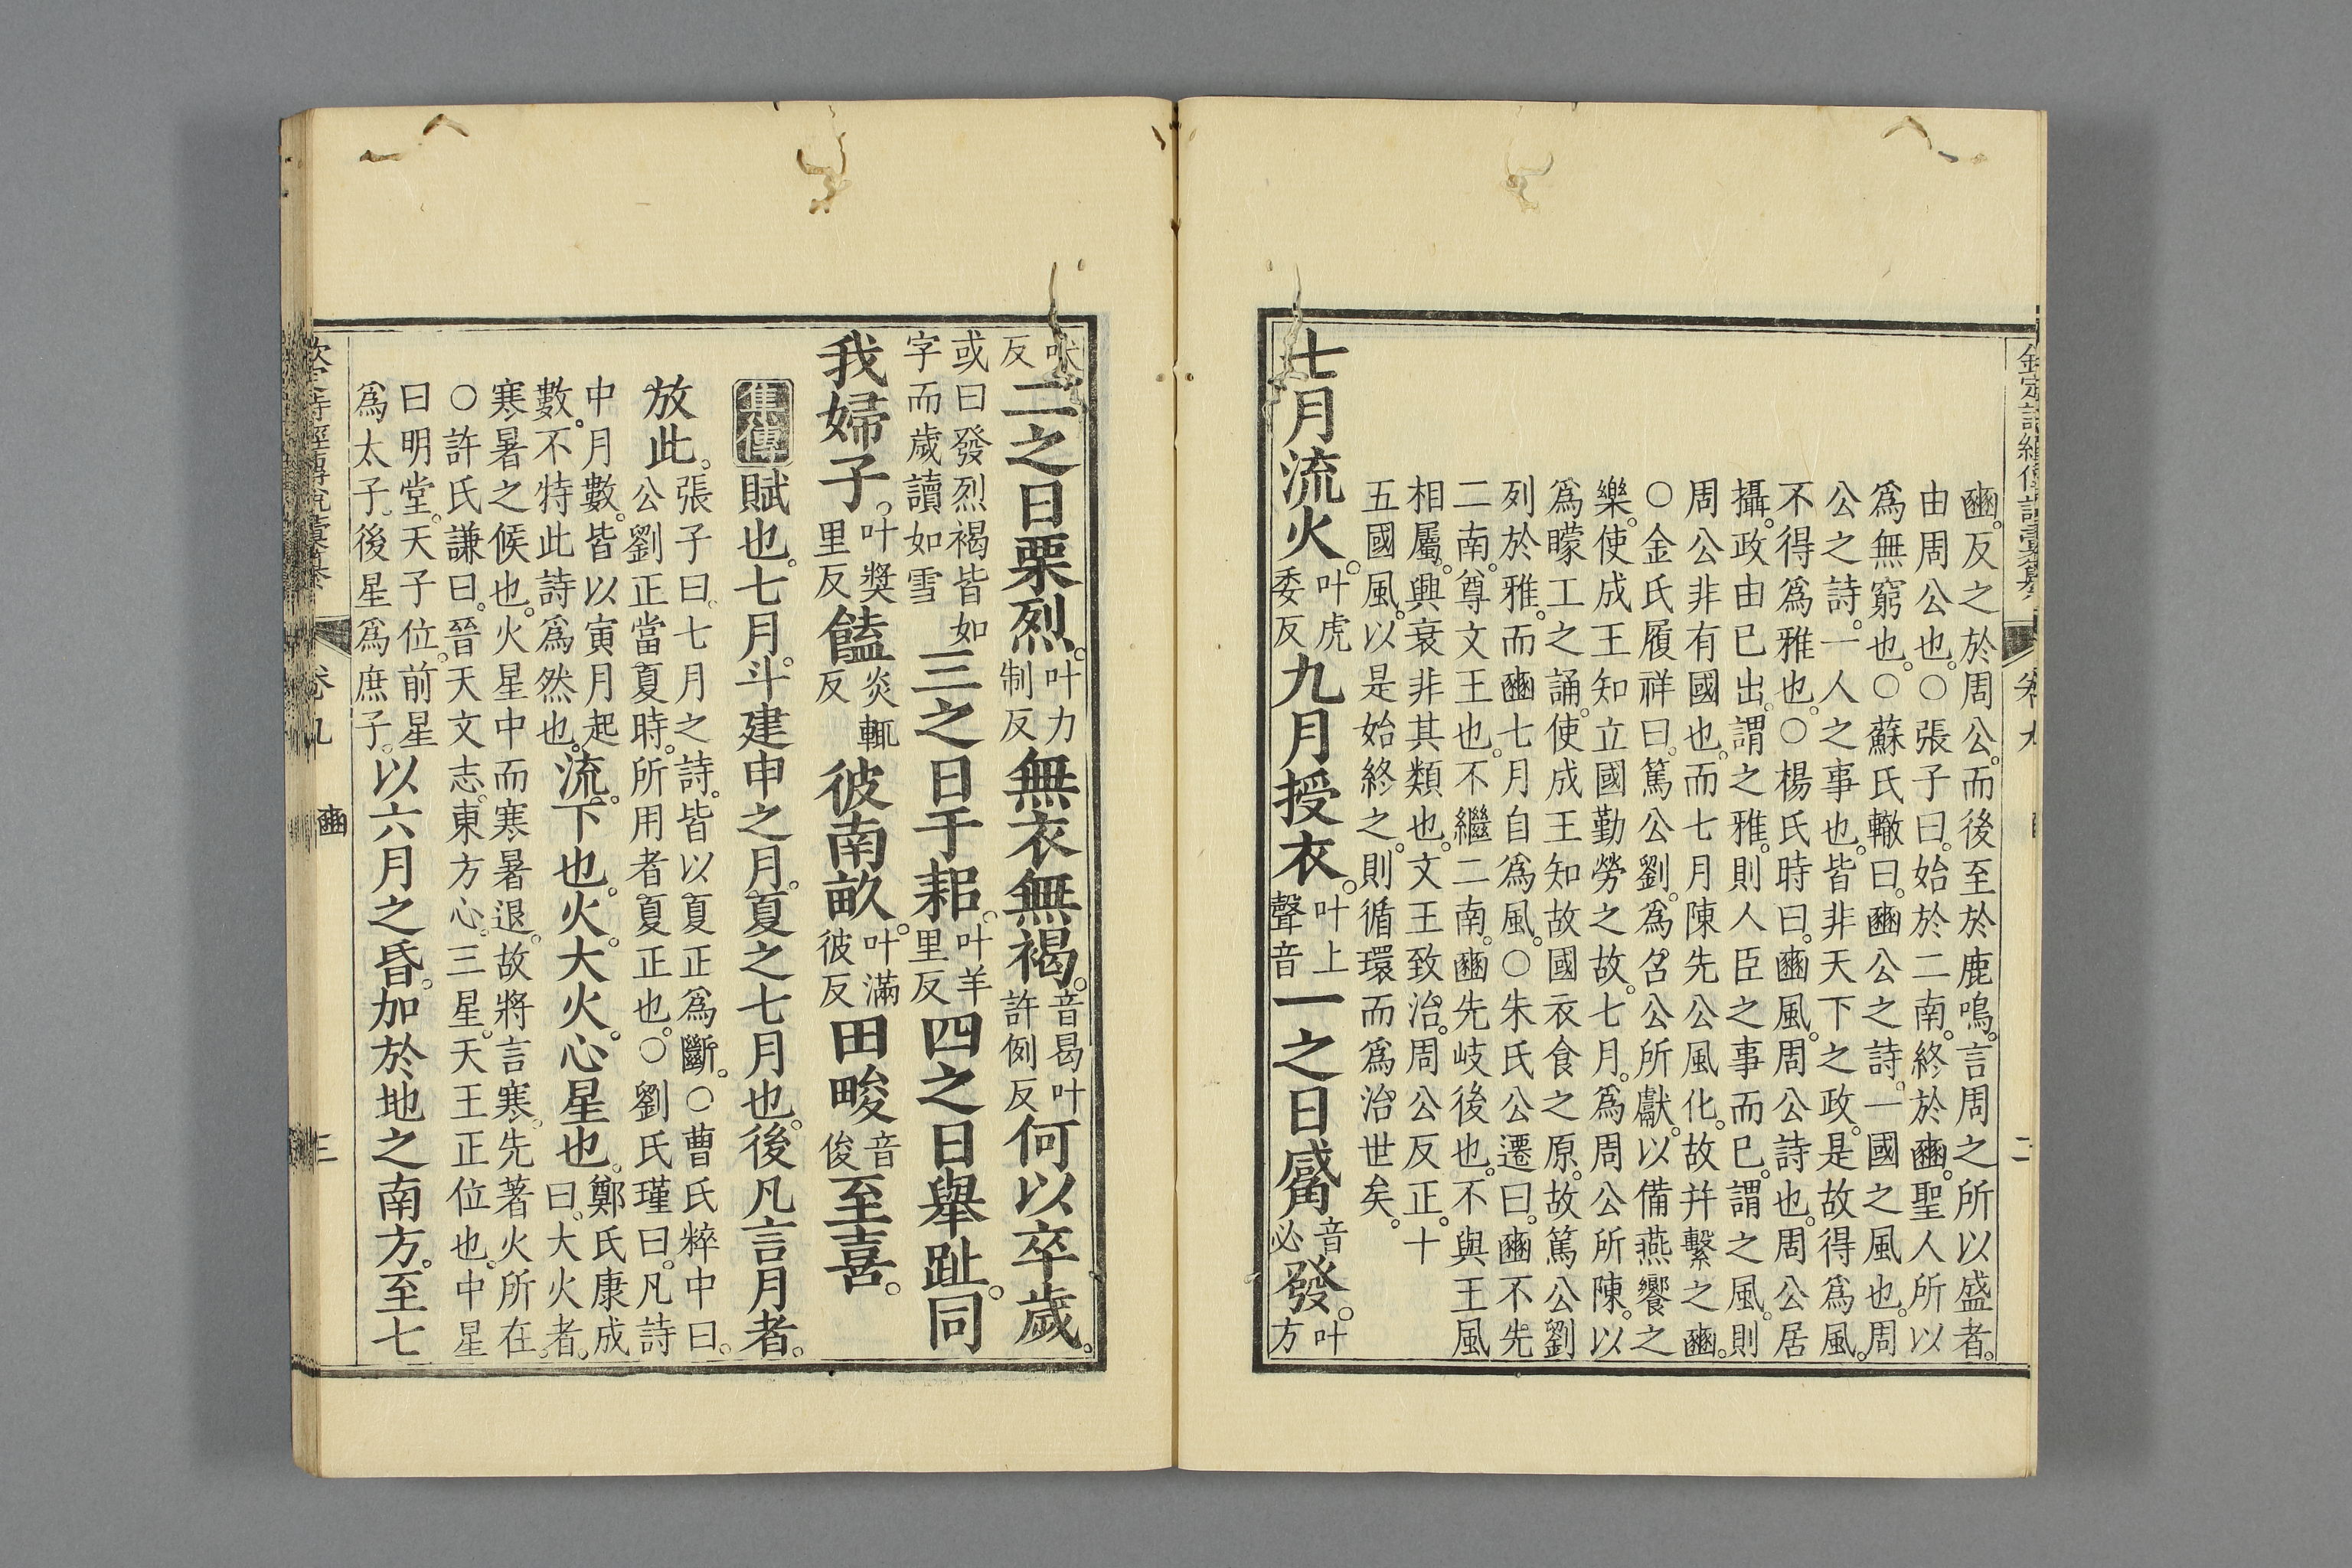 豳。反之於周公。而後至於鹿鳴。言周之所以盛者。
由周公也。○張子曰。始於二南。終於豳。聖人所以
爲無窮也。○蘇氏轍曰。豳公之詩。一國之風也。周
公之詩。一人之事也。皆非天下之政。是故得爲風。
不得爲雅也。○楊氏時曰。豳風。周公詩也。周公居
攝。政由已出。謂之雅。則人臣之事而已。謂之風。則
周公非有國也。而七月陳先公風化。故幷繫之豳。
○金氏履祥曰。篤公劉。爲召公所獻。以備燕饗之
樂。使成王知立國勤勞之故。七月。爲周公所陳。以
爲矇工之誦。使成王知故國衣食之原。故篤公劉
列於雅。而豳七月自爲風。○朱氏公遷曰。豳不先
二南。尊文王也。不繼二南。豳先岐後也。不與王風
相屬。興衰非其類也。文王致治。周公反正。十
五國風。以是始終之。則循環而爲治世矣。
七月流火。叶虎委反九月授衣。叶上聲音一之日觱音必發。叶方
吠反二之日栗烈。叶力制反無衣無褐。音曷叶許例反何以卒歲。
或曰發烈褐皆如字而歲讀如雪三之日于耜。叶羊里反四之日舉趾。同
我婦子。叶奬里反饁炎輒反彼南畝。叶滿彼反田畯音俊至喜。
集傳賦也。七月。斗建申之月。夏之七月也。後凡言月者。
放此。張子曰。七月之詩。皆以夏正爲斷。○曹氏粹中曰。公劉正當夏時。所用者夏正也。○劉氏瑾曰。凡詩
中月數。皆以寅月起數。不特此詩爲然也。流。下也。火。大火。心星也。鄭氏康成曰。大火者。
寒暑之候也。火星中而寒暑退。故將言寒。先著火所在。○許氏謙曰。晉天文志。東方心。三星。天王正位也。中星
曰明堂。天子位。前星爲太子。後星爲庶子。以六月之昏。加於地之南方。至七
卷九
豳
三